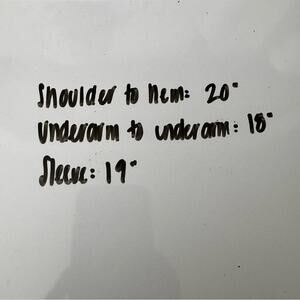 Shoulder to hem: 20"
Underarm to underarm: 18"
Sleeve: 19"